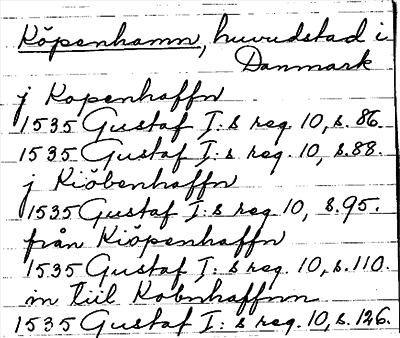 Köpenhamn, huvudstad i
Danmark
j Kopenhaffn
1535 Gustaf I:s reg. 10, s. 86.
1535 Gustaf I:s reg. 10, s. 88.
j Kiöbenhaffn
1535 Gustaf I:s reg. 10, s. 95.
från Kiöpenhaffn
1535 Gustaf I:s reg. 10, s. 110.
in tiil Kobnhaffnn
1535 Gustaf I:s reg. 10, s. 126.